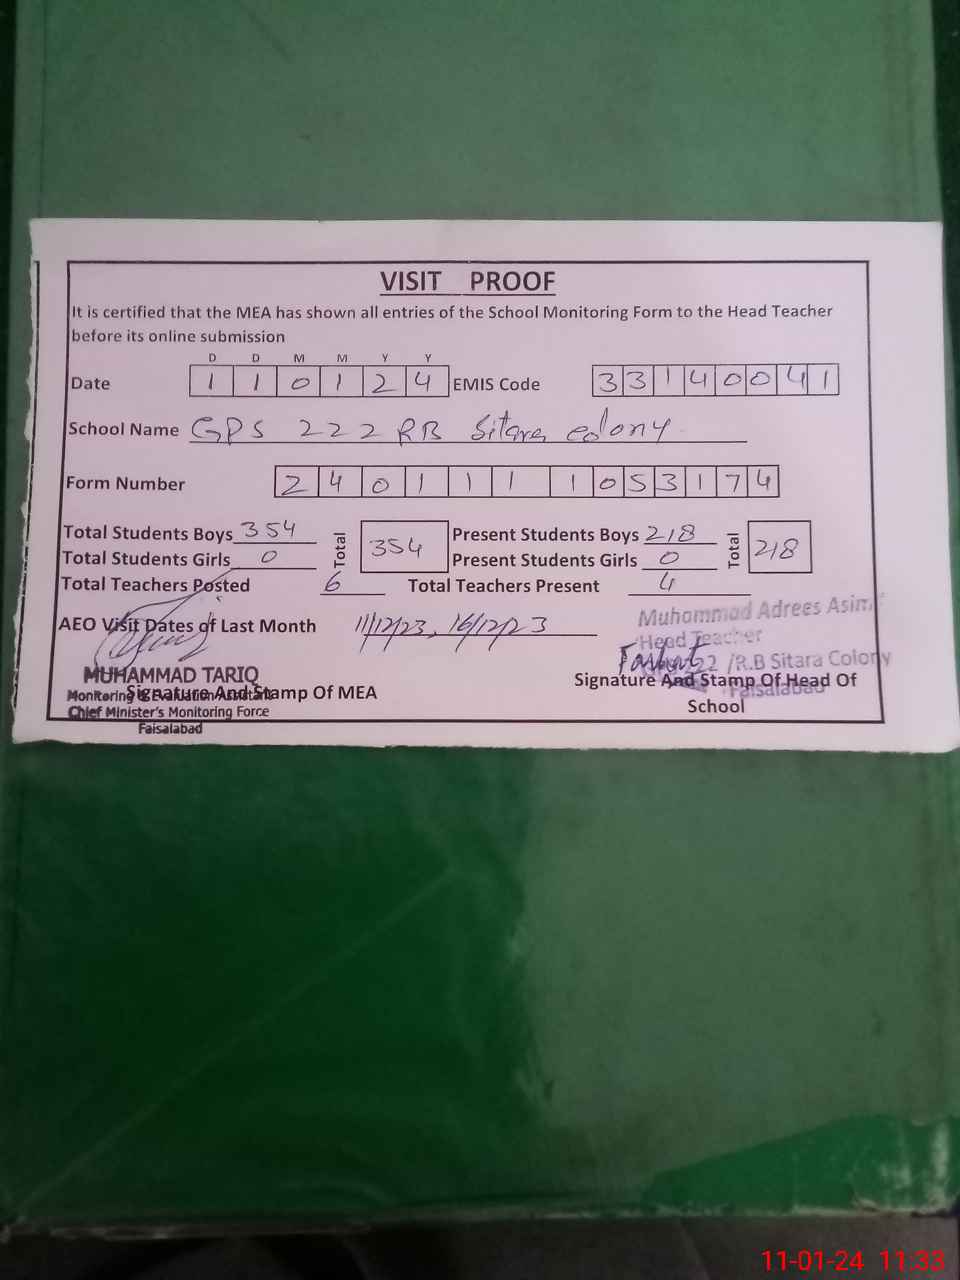 VISIT PROOF
It is certified that the MEA has shown all entries of the School Monitoring Form to the Head Teacher
before its online submission
D D M M Y Y
Date 1 1 0 1 2 4 EMIS Code 3 3 1 4 0 0 4 1
School Name GPS 222 RB Sitara colony
Form Number 2 4 0 1 1 1 1 0 5 3 1 7 4
Total Students Boys 354 Total 354 Present Students Boys 218 Total 218
Total Students Girls 0 Present Students Girls 0
Total Teachers Posted 6 Total Teachers Present 4
AEO Visit Dates of Last Month 11/12/23, 16/12/23
Muhammad Adrees Asim
Head Teacher
222 /R.B Sitara Colony
Faisalabad
MUHAMMAD TARIQ
Monitoring & Evaluation Assistant
Chief Minister's Monitoring Force
Faisalabad
Signature And Stamp Of MEA
Signature And Stamp Of Head Of
School
11-01-24 11:33